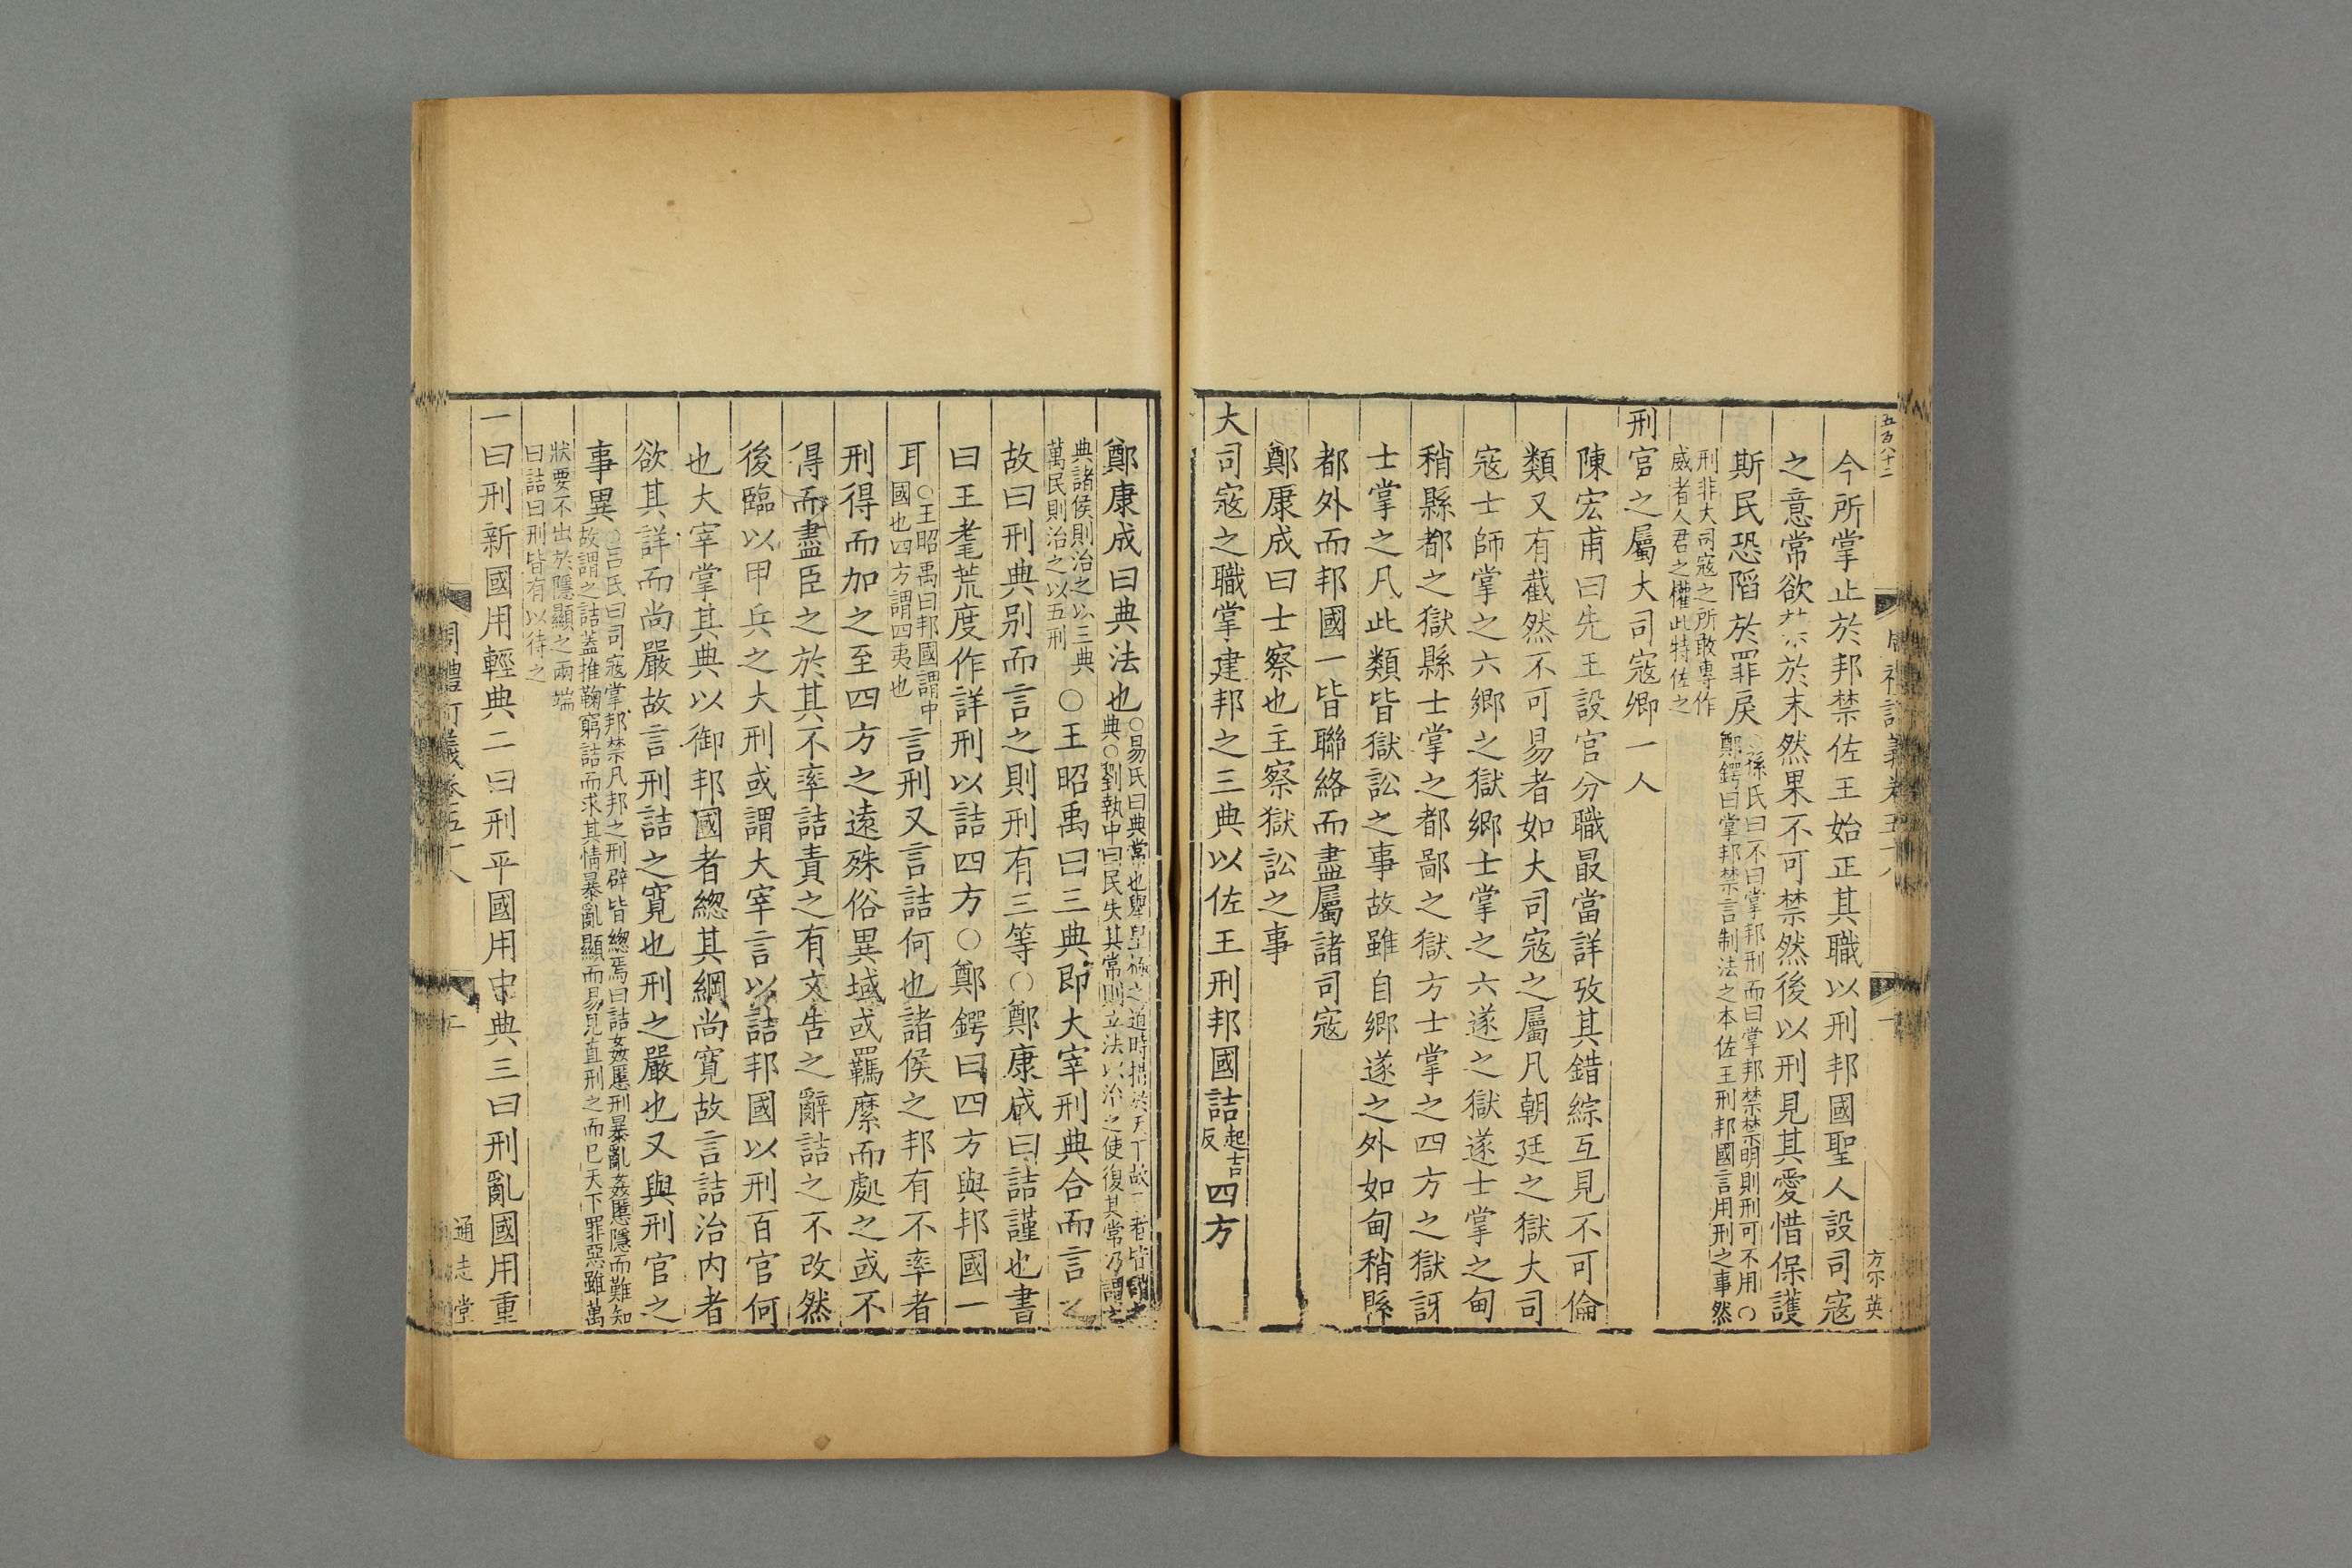 五百八十二
今所掌止於邦禁佐王始正其職以刑邦國聖人設司寇
之意常欲禁於未然果不可禁然後以刑見其愛惜保護
斯民恐陷於罪戾
○孫氏曰不曰掌邦刑而曰掌邦禁禁明則刑可不用○
鄭鍔曰掌邦禁言制法之本佐王刑邦國言用刑之事然
刑非大司寇之所敢專作
威者人君之權此特佐之
刑官之屬大司寇卿一人
陳宏甫曰先王設官分職最當詳攷其錯綜互見不可倫
類又有截然不可易者如大司寇之屬凡朝廷之獄大司
寇士師掌之六鄉之獄鄉士掌之六遂之獄遂士掌之甸
稍縣都之獄縣士掌之都鄙之獄方士掌之四方之獄訝
士掌之凡此類皆獄訟之事故雖自鄉遂之外如甸稍縣
都外而邦國一皆聯絡而盡屬諸司寇
鄭康成曰士察也主察獄訟之事
大司寇之職掌建邦之三典以佐王刑邦國詰起吉反四方
鄭康成曰典法也
○易氏曰典常也舉皇極之道時措於天下故二者皆謂之
典○劉執中曰民失其常則立法以治之使復其常乃謂之
典諸侯則治之以三典
萬民則治之以五刑
○王昭禹曰三典即大宰刑典合而言之
故曰刑典别而言之則刑有三等○鄭康成曰詰謹也書
曰王耄荒度作詳刑以詰四方○鄭鍔曰四方與邦國一
耳
○王昭禹曰邦國謂中
國也四方謂四夷也
言刑又言詰何也諸侯之邦有不率者
刑得而加之至四方之遠殊俗異域或羈縻而處之或不
得而盡臣之於其不率詰責之有文告之辭詰之不改然
後臨以甲兵之大刑或謂大宰言以詰邦國以刑百官何
也大宰掌其典以御邦國者總其綱尚寬故言詰治内者
欲其詳而尚嚴故言刑詰之寬也刑之嚴也又與刑官之
事異
○呂氏曰司寇掌邦禁凡邦之刑辟皆總焉曰詰姦慝刑暴亂姦慝隱而難知
故謂之詰蓋推鞠窮詰而求其情暴亂顯而易見直刑之而已天下罪惡雖萬
狀要不出於隱顯之兩端
曰詰曰刑皆有以待之
一曰刑新國用輕典二曰刑平國用中典三曰刑亂國用重
通志堂